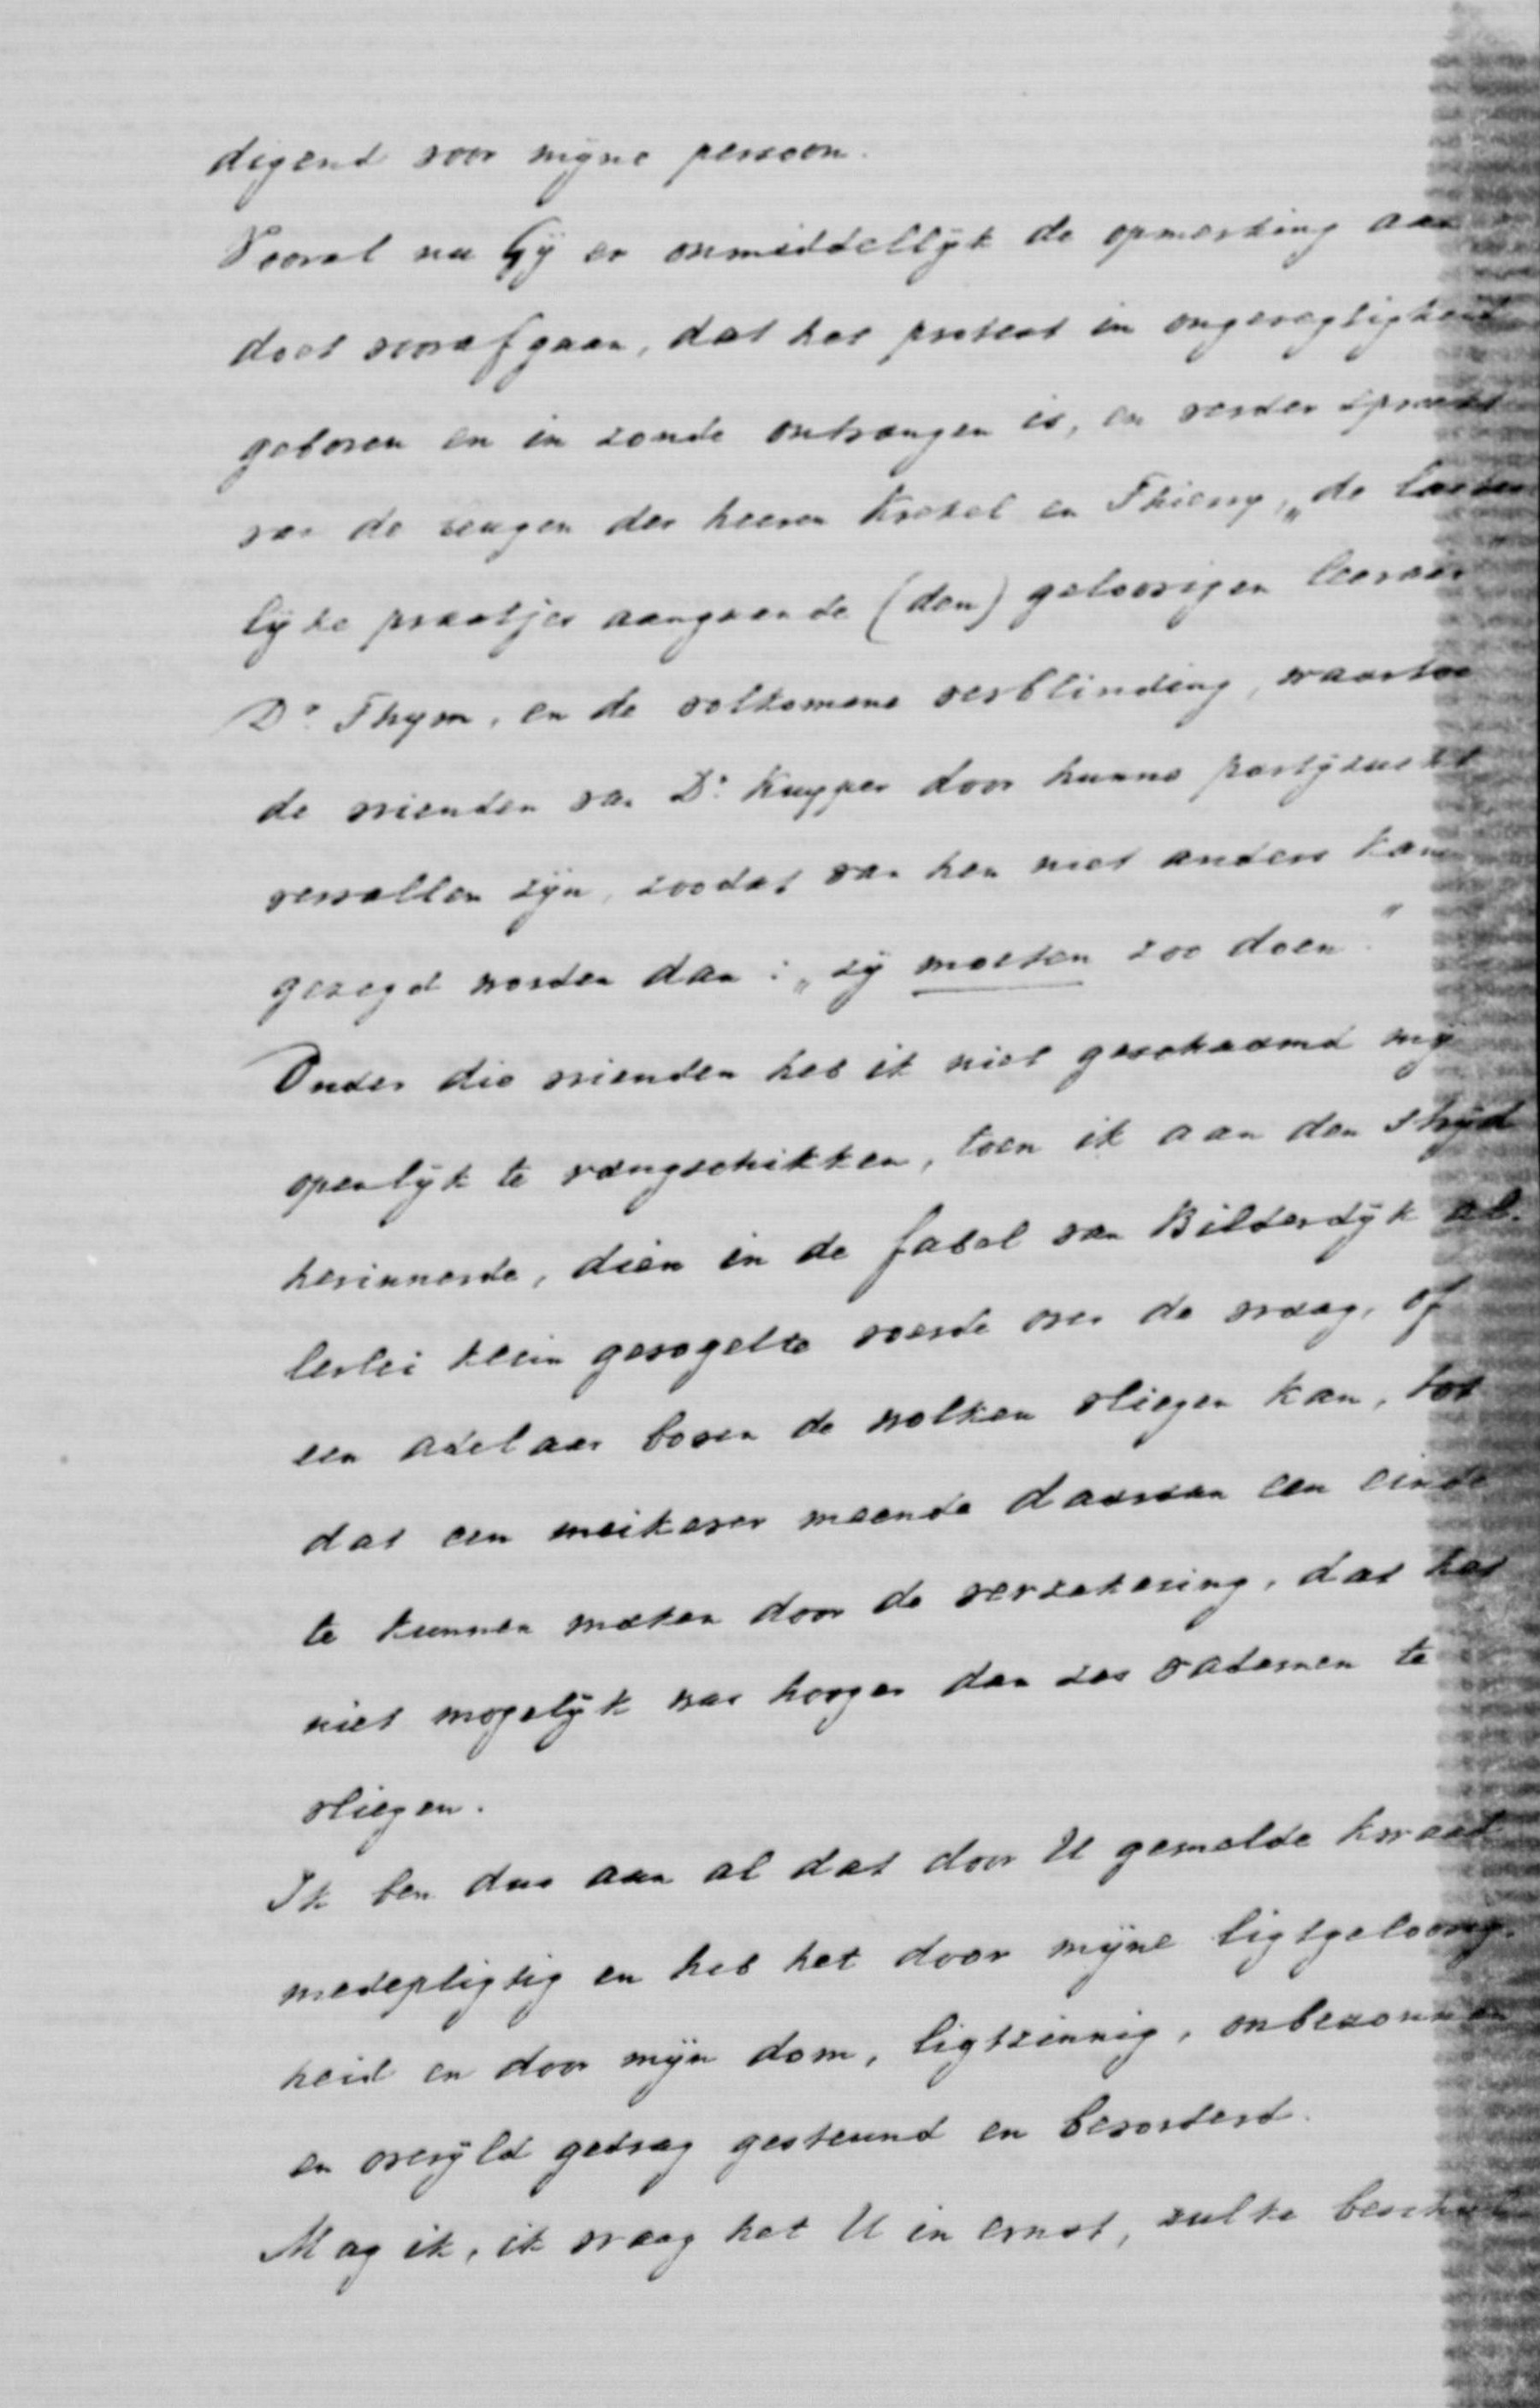 digend voor mijne persoon.
Vooral nu Gij er onmiddellijk de opmerking aan
doet voorafgaan, dat het protest in ongeregtigheid
geboren en in zonde ontvangen is, en verder spreekt
van de leugen der heeren Krekel en Thierry, „de laster
lijke praatjes aangaande (den) geloovigen leeraar
Dr. Thijm, en de volkomene verblinding, waartoe
de vrienden van Dr. Kuyper door hunne partijzucht
vervallen zijn, zoodat van hen niet anders kan
gezegd worden dan: „zij moeten zoo doen."
Onder die vrienden heb ik niet geschaamd mij
openlijk te rangschikken, toen ik aan den strijd
herinnerde, dien in de fabel van Bilderdijk al-
lerlei klein gevogelte voerde over de vraag, of
een adelaar boven de wolken vliegen kan, tot
dat een meikever meende daarvan een einde
te kunnen maken door de verzekering, dat het
niet mogelijk was hooger dan zes vademen te
vliegen.
Ik ben dus aan al dat door U gemelde kwaad
medepligtig en heb het door mijne ligtgeloovig-
heid en door mijn dom, ligtzinnig, onbezonnen
en overijld gedrag gesteund en bevorderd.
Mag ik, ik vraag het U in ernst, zulke